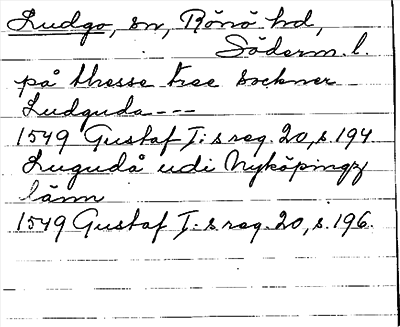 Ludgo, sn, Rönö hd,
Söderm. l.
på thesse tree sockner
Ludguda ---
1549 Gustaf I:s reg. 20, s. 194
Lugudå udi Nyköpingz
länn
1549 Gustaf I:s reg. 20, s. 196.